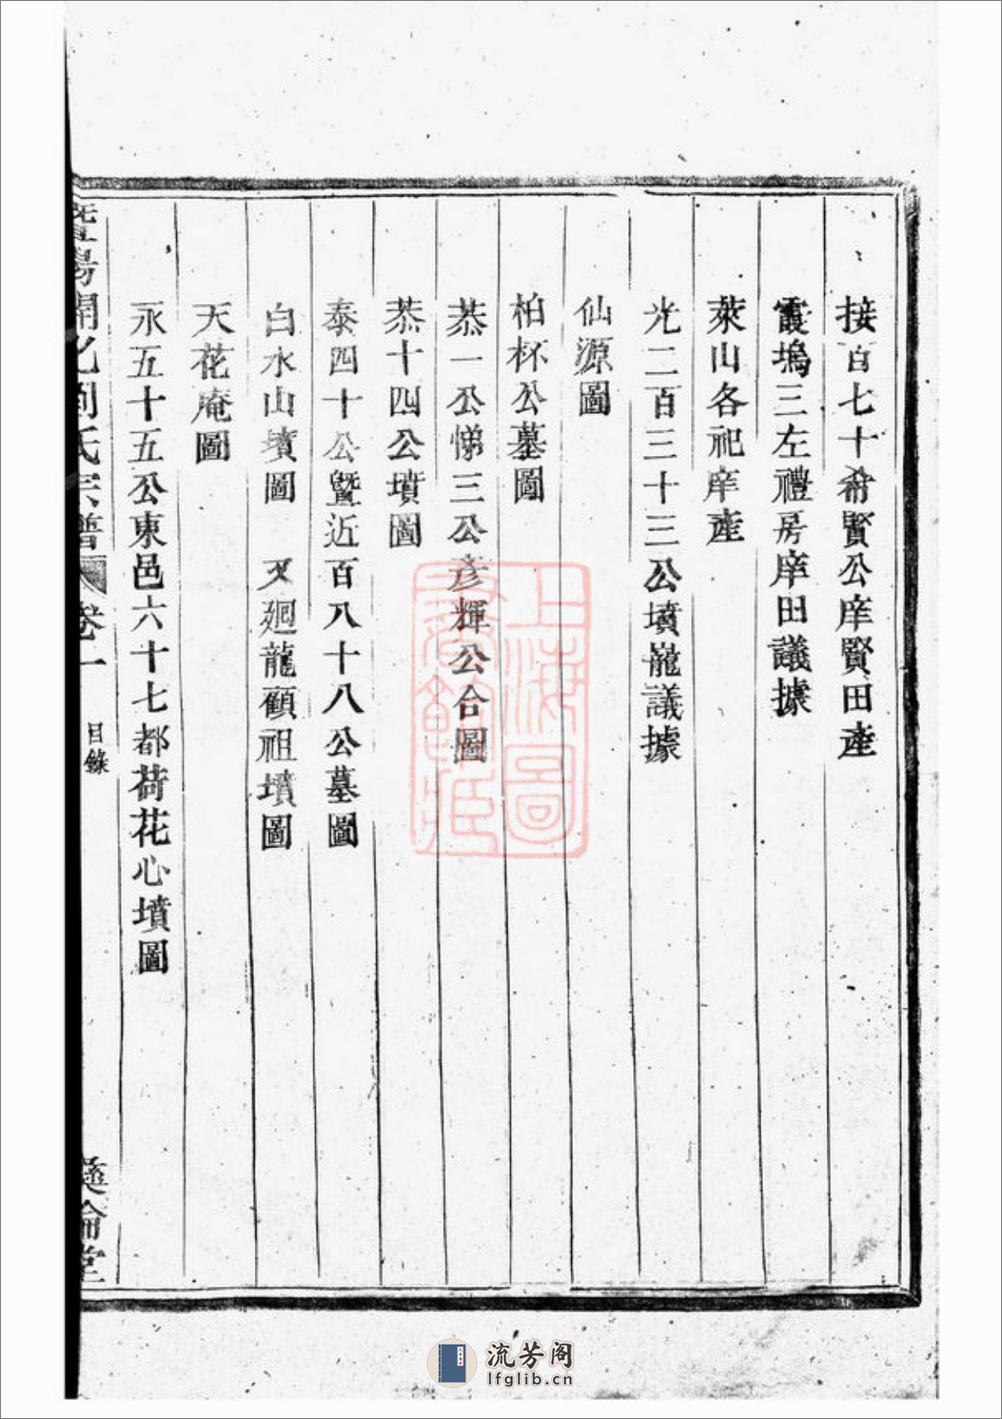 接百七十希賢公庠賢田產
霞塢三左禮房庠田議據
萊山各祀庠產
光二百三十三公墳巃議據
仙源圖
柏杯公墓圖
恭一公悌三公彥輝公合圖
恭十四公墳圖
泰四十公暨近百八十八公墓圖
白水山墳圖　又廻龍顧祖墳圖
天花庵圖
永五十五公東邑六十七都荷花心墳圖
暨陽開化劉氏宗譜 卷一 目錄 彝倫堂
上海圖書館藏
流芳阁
lfglib.cn